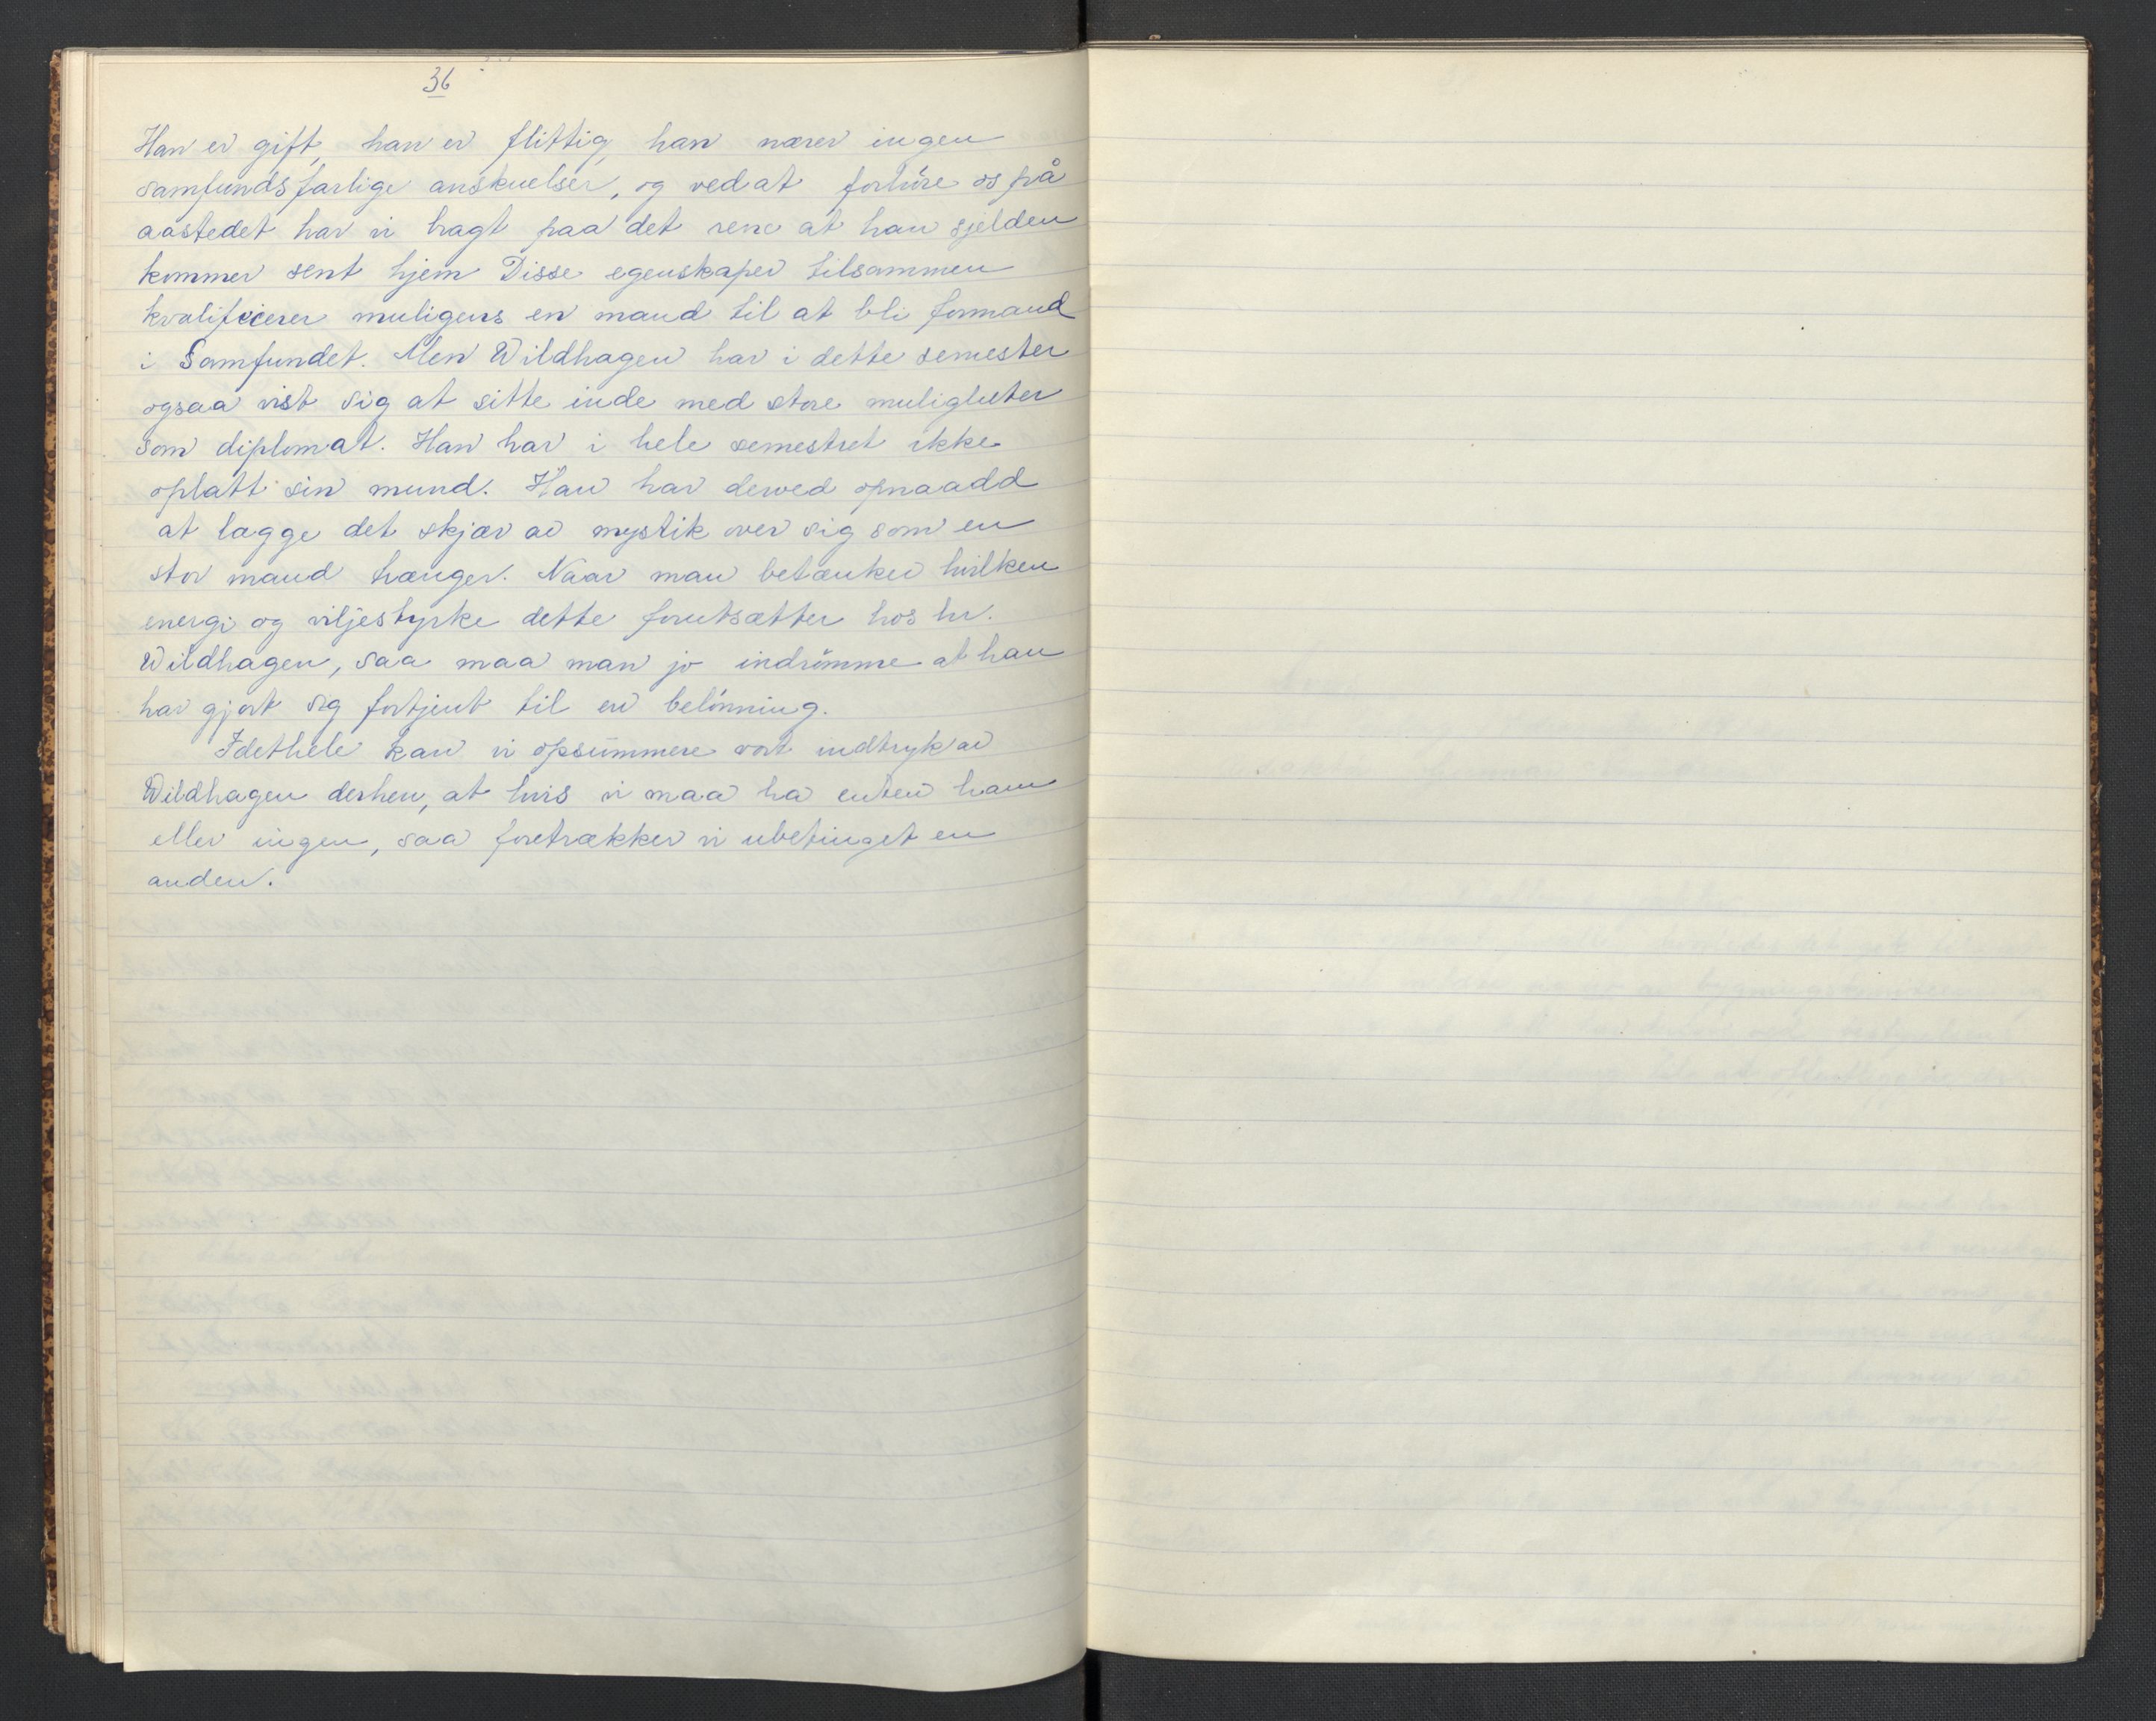 36
Han er gift, han er flittig, han nærer ingen
samfundsfarlige anskuelser, og ved at forhöre os på
aastedet har vi bragt paa det rene at han sjelden
kommer sent hjem Disse egenskaper tilsammen
kvalificerer muligens en mand til at bli formand
i Samfundet. Men Wildhagen har i dette semester
ogsaa vist sig at sitte inde med store muligheter
som diplomat. Han har i hele semestret ikke
oplatt sin mund. Han har derved opnaadd
at lægge det skjær av mystik over sig som en
stor mand trænger. Naar man betænker hvilken
energi og viljestyrke dette forutsætter hos hr.
Wildhagen, saa maa man jo indrömme at han
har gjort sig fortjent til en belönning.
Idethele kan vi opsummere vort indtryk av
Wildhagen derhen, at hvis vi maa ha enten ham
eller ingen, saa foretrækker vi ubetinget en
anden.